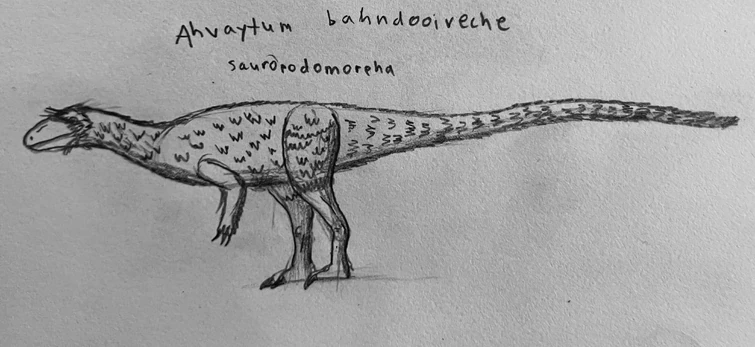 Ahvaytum bahndooiveche
sauropodomorpha